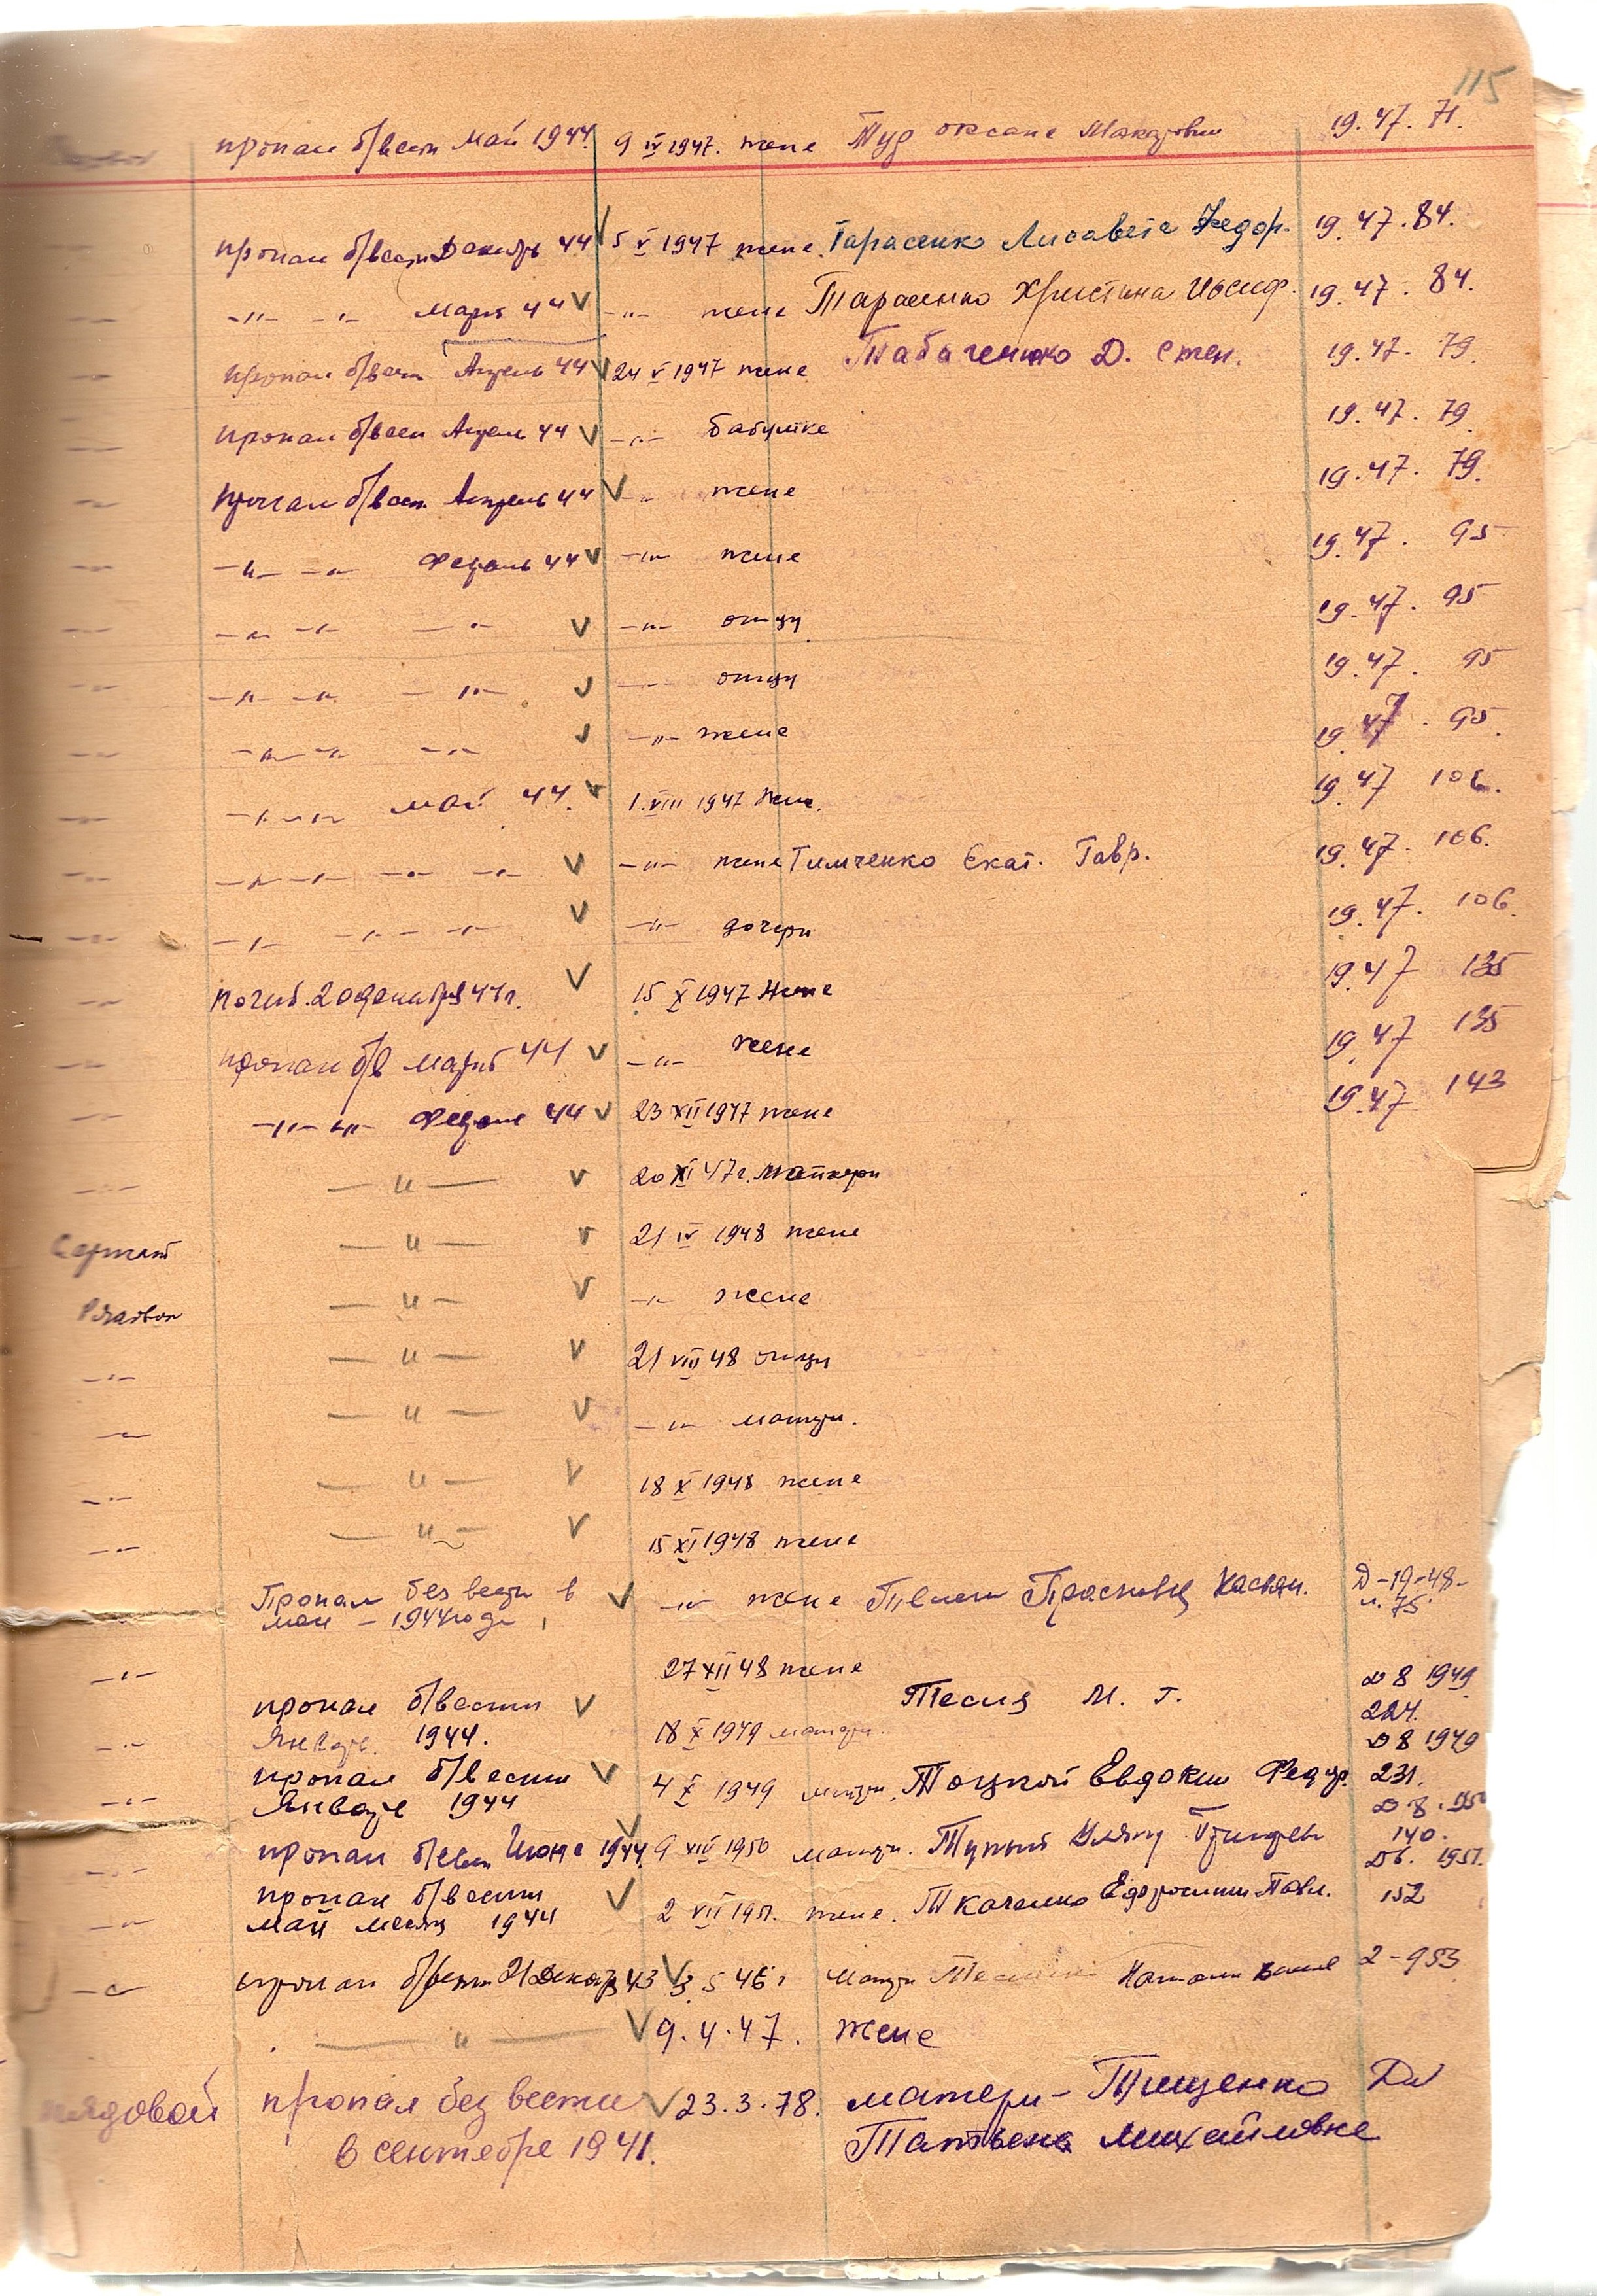 115
пропал б/вести Май 1944. 9 IV 1947. жене Туз оксане Макаровне 19.47.71.
пропал б/вести Декабрь 44 V 5 V 1947 жене. Тарасенко Лисавета Федор. 19.47.84.
-"- -"- Март 44 V -"- жене Тарасенко Христина Иосиф. 19.47.84.
пропал б/вести Апрель 44 V 24 V 1947 жене Табаченко Д. Степ. 19.47.79.
пропал б/вести Апрель 44 V -"- бабушке 19.47.79.
пропал б/вест. Апрель 44 V -"- жене 19.47.79.
-"- -"- Февраль 44 V -"- жене 19.47.95
-"- -"- -"- V -"- отцу 19.47.95
-"- -"- -"- V -"- отцу 19.47.95
-"- -"- -"- V -"- жене 19.47.95.
-"- -"- май 44. V 1.VIII 1947 жене. 19.47 106.
-"- -"- -"- -"- V -"- жене Тимченко Екат. Гавр. 19.47.106.
-"- -"- -"- -"- V -"- дочери 19.47.106.
погиб. 20 декабря 44 г. V 15 X 1947 жене 19.47 135
пропал б/в март 44 V -"- жене 19.47 135
-"- -"- Феврале 44 V 23 XII 1947 жене 19.47 143
-"- V 20 XI 47 г. матери
Сержант -"- V 21 IV 1948 жене
Рядовой -"- V -"- жене
-"- -"- V 21 VIII 48 отцу
-"- -"- V -"- матери.
-"- -"- V 18 X 1948 жене
-"- -"- V 15 XI 1948 жене
Пропал без вести в V -"- жене Прасковц Касьян. Д-19-48-
мае - 1944 году л. 75
-"- 27 XII 48 жене
пропал б/вести V Тесля М. Г. Д 8 1949
Январе. 1944. 18 X 1949 матери. 224.
пропал б/вести V 4 X 1949 матери. Тоцкой Евдокии Федор. Д 8 1949
Январе 1944 231.
пропал б/вести Июне 1944 V 9 1950 матери. 140.
пропал б/вести V 2 VII 1951. жене. Ткаченко Павл. Д6. 1951.
май месяц 1944 152
пропал б/вести 21 Декабр 43 V 3.5 46 г матери 2-953
-"- V 9.4.47. жене
рядовой пропал без вести V 23.3.78. матери - Тищенко
в сентябре 1941. Татьяна Михайловне